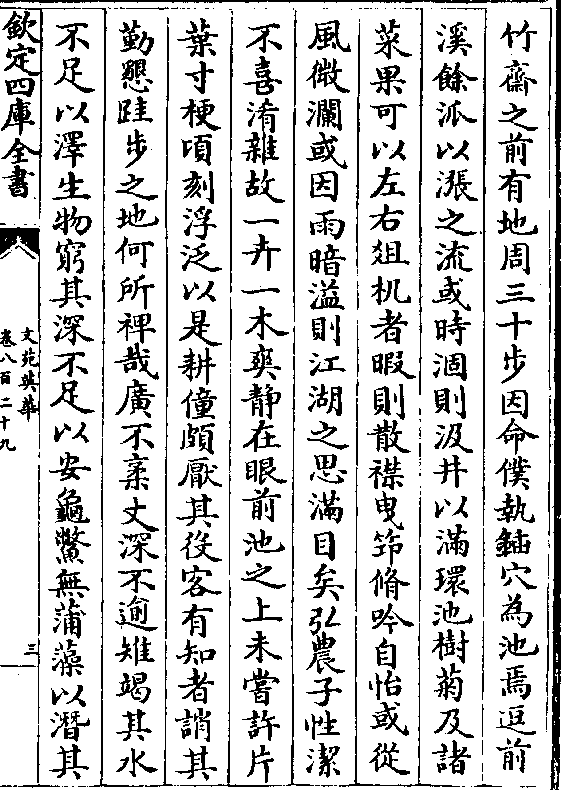 竹齋之前有地周三十步因命僕執鍤穴為池焉逗前
溪餘泒以漲之流或時涸則汲井以滿環池樹菊及諸
菜果可以左右俎机者暇則散襟曳笻脩吟自怡或從
風微瀾或因雨暗溢則江湖之思滿目矣弘農子性潔
不喜淆雜故一卉一木奭静在眼前池之上未嘗許片
葉寸梗頃刻浮泛以是耕僮頗厭其役客有知者誚其
勤懇跬步之地何所裨哉廣不袤丈深不逾雉竭其水
不足以澤生物窮其深不足以安龜鱉無蒲藻以潛其
欽定四庫全書
文苑英華
卷八百二十九
三